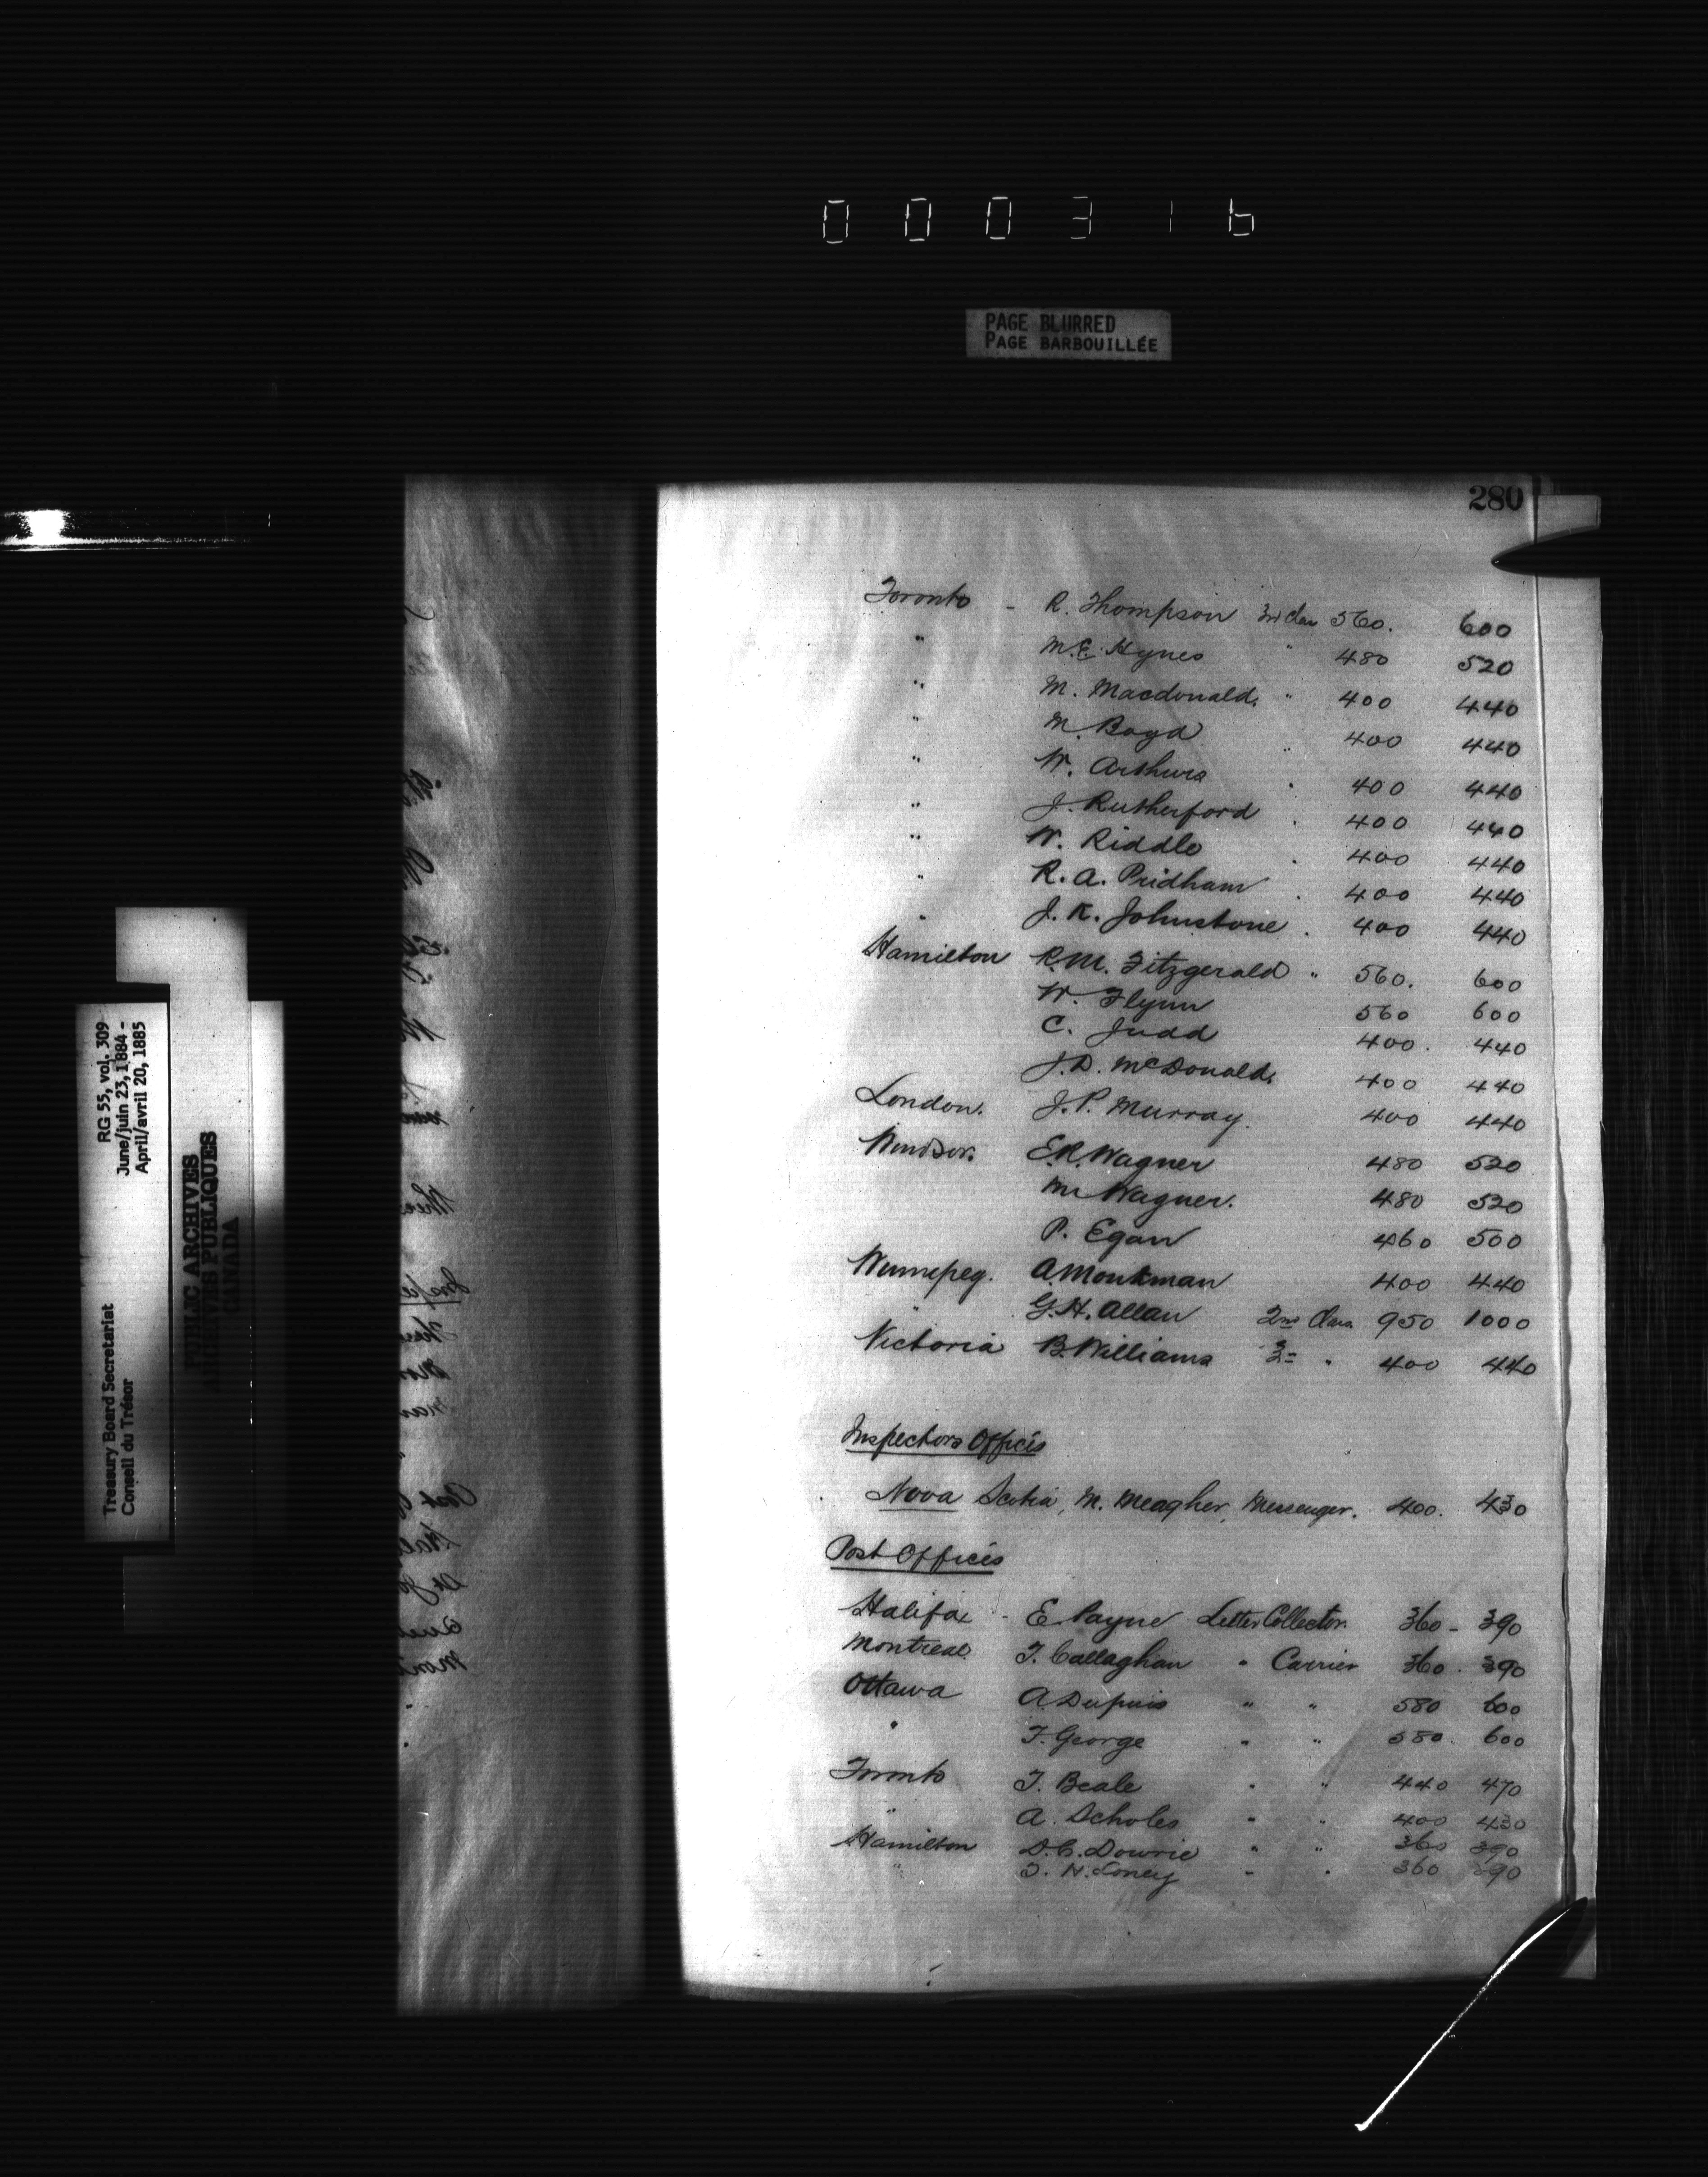 000316
PAGE BLURRED
PAGE BARBOUILLÉE
280
Toronto - R. Thompson 3rd Class 560. 600
" M.E. Hynes " 480 520
" M. Macdonald. " 400 440
" M. Boyd " 400 440
" W. Arthurs " 400 440
" J. Rutherford " 400 440
" W. Riddle " 400 440
" R. A. Pridham " 400 440
" J. K. Johnstone " 400 440
Hamilton R.M. Fitzgerald " 560. 600
W. Flynn 560 600
C. Judd 400. 440
J.D. McDonald. 400 440
London. J.P. Murray. 400 440
Windsor. E.R. Wagner 480 520
Wagner. 480 520
P. Egan 460 500
Winnipeg. A. Monkman 400 440
" G.H. Allan 2nd Class 950 1000
Victoria B. Williams 3rd " 400 440
Inspectors Offices
Nova Scotia, M. Meagher, Messenger. 400. 430
Post Offices
Halifax - E. Payne Letter Collector. 360 - 390
Montreal. T. Callaghan " Carrier 360. 390
Ottawa A. Dupuis " " 580 600
" F. George " " 580. 600
Toronto T. Beale " " 440 470
" A. Scholes " " 400 430
Hamilton D.C. Dowrie " " 360 390
" T. H. Loney " " 360 390
RG 55, vol. 309
June/juin 23, 1884 -
April/avril 20, 1885
Treasury Board Secretariat
Conseil du Trésor
PUBLIC ARCHIVES
ARCHIVES PUBLIQUES
CANADA